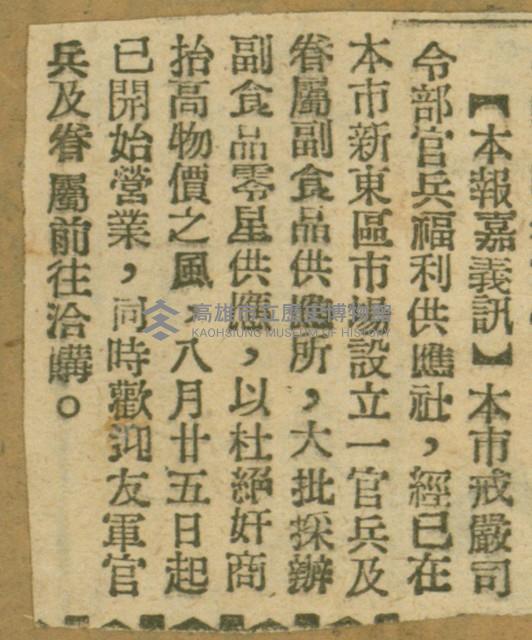 【本報嘉義訊】本市戒嚴司
令部官兵福利供應社，經已在
本市新東區市場設立一官兵及
眷屬副食品供應所，大批採辦
副食品零星供應，以杜絕奸商
抬高物價之風，八月廿五日起
已開始營業，同時歡迎友軍官
兵及眷屬前往洽購。
高雄市立歷史博物館
KAOHSIUNG MUSEUM OF HISTORY